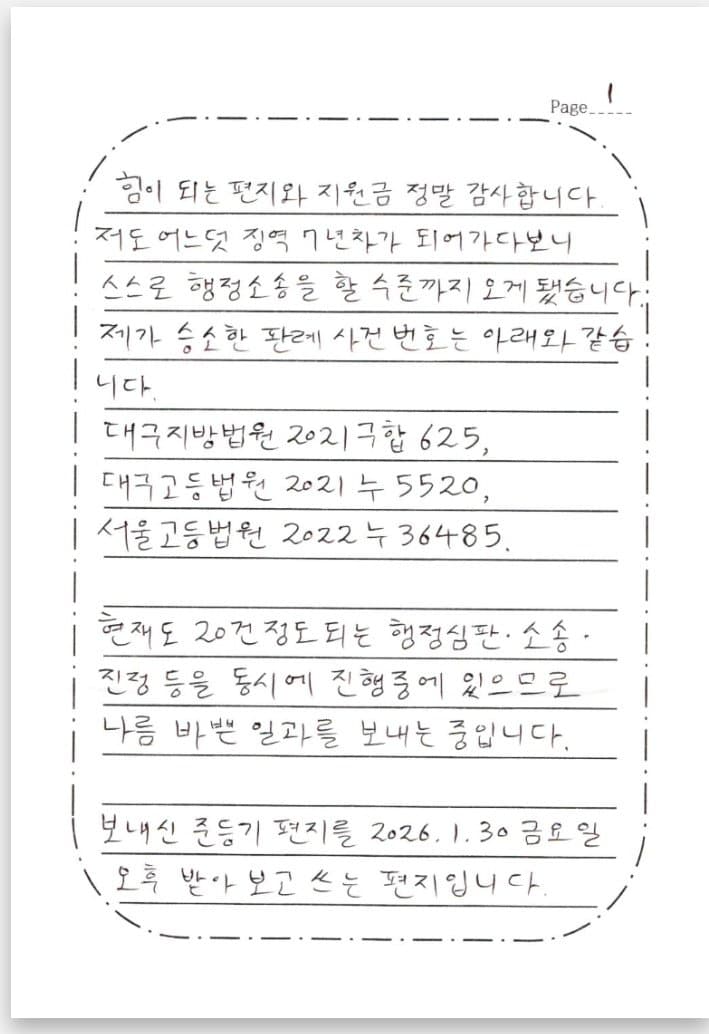 Page 1
힘이 되는 편지와 지원금 정말 감사합니다.
저도 어느덧 징역 7년차가 되어가다보니
스스로 행정소송을 할 수준까지 오게 됐습니다.
제가 승소한 판례 사건번호는 아래와 같습
니다.
대구지방법원 2021구합 625,
대구고등법원 2021 누 5520,
서울고등법원 2022 누 36485.
현재도 20건정도되는 행정심판·소송·
진정 등을 동시에 진행중에 있으므로
나름 바쁜 일과를 보내는 중입니다.
보내신 준등기 편지를 2026. 1. 30 금요일
오후 받아 보고 쓰는 편지입니다.